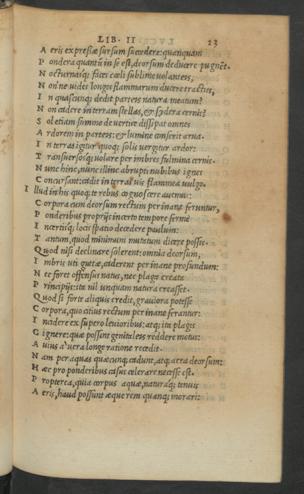 LIB. II 23
A eris expressæ sursum succedere: quanquam
P ondera quantũ in se est, deorsum deducere pugnẽt.
N octurnasq; faces cœli sublime uolantes,
N onne uides longos flammarum ducere tractus,
I n quascunq; dedit parteis natura meatum?
N on cadere in terram stellas, & sydera cernis?
S ol etiam summo de uertice dissipat omnes
A rdorem in parteis: & lumine conserit arua.
I n terras igitur quoq; solis uergitur ardor:
T ransuersosq; uolare per imbres fulmina cernis.
N unc hinc, nunc illinc abrupti nubibus ignes
C oncursant: cadit in terras uis flammea uulgo.
I llud in his quoq; te rebus cognoscere auemus:
C orpora cum deorsum rectum per inane feruntur,
P onderibus proprijs incerto tempore ferme
I ncertisq; locis spatio decedere paulum:
T antum, quod minimum mutatum dicere possis.
Q uod nisi declinare solerent: omnia deorsum,
I mbris uti guttæ, caderent per inane profundum:
N ec foret offensus natus, nec plaga creata
P rincipijs: ita nil unquam natura creasset.
Q uod si forte aliquis credit, grauiora potesse
C orpora, quo citius rectum per inane feruntur:
I ncidere ex supero leuioribus: atq; ita plagis
G ignere: quæ possint genitaleis reddere motus:
A uius a uera longe ratione recedit.
N am per aquas quæcunq; cadunt, atq; aera deorsum:
H æc pro ponderibus casus celerare necesse est.
P ropterea, quia corpus aquæ, naturaq; tenuis
A eris, haud possunt æque rem quanq; morari: